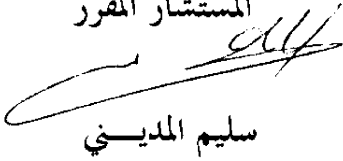 المستشار المقرر
سليم المديــني